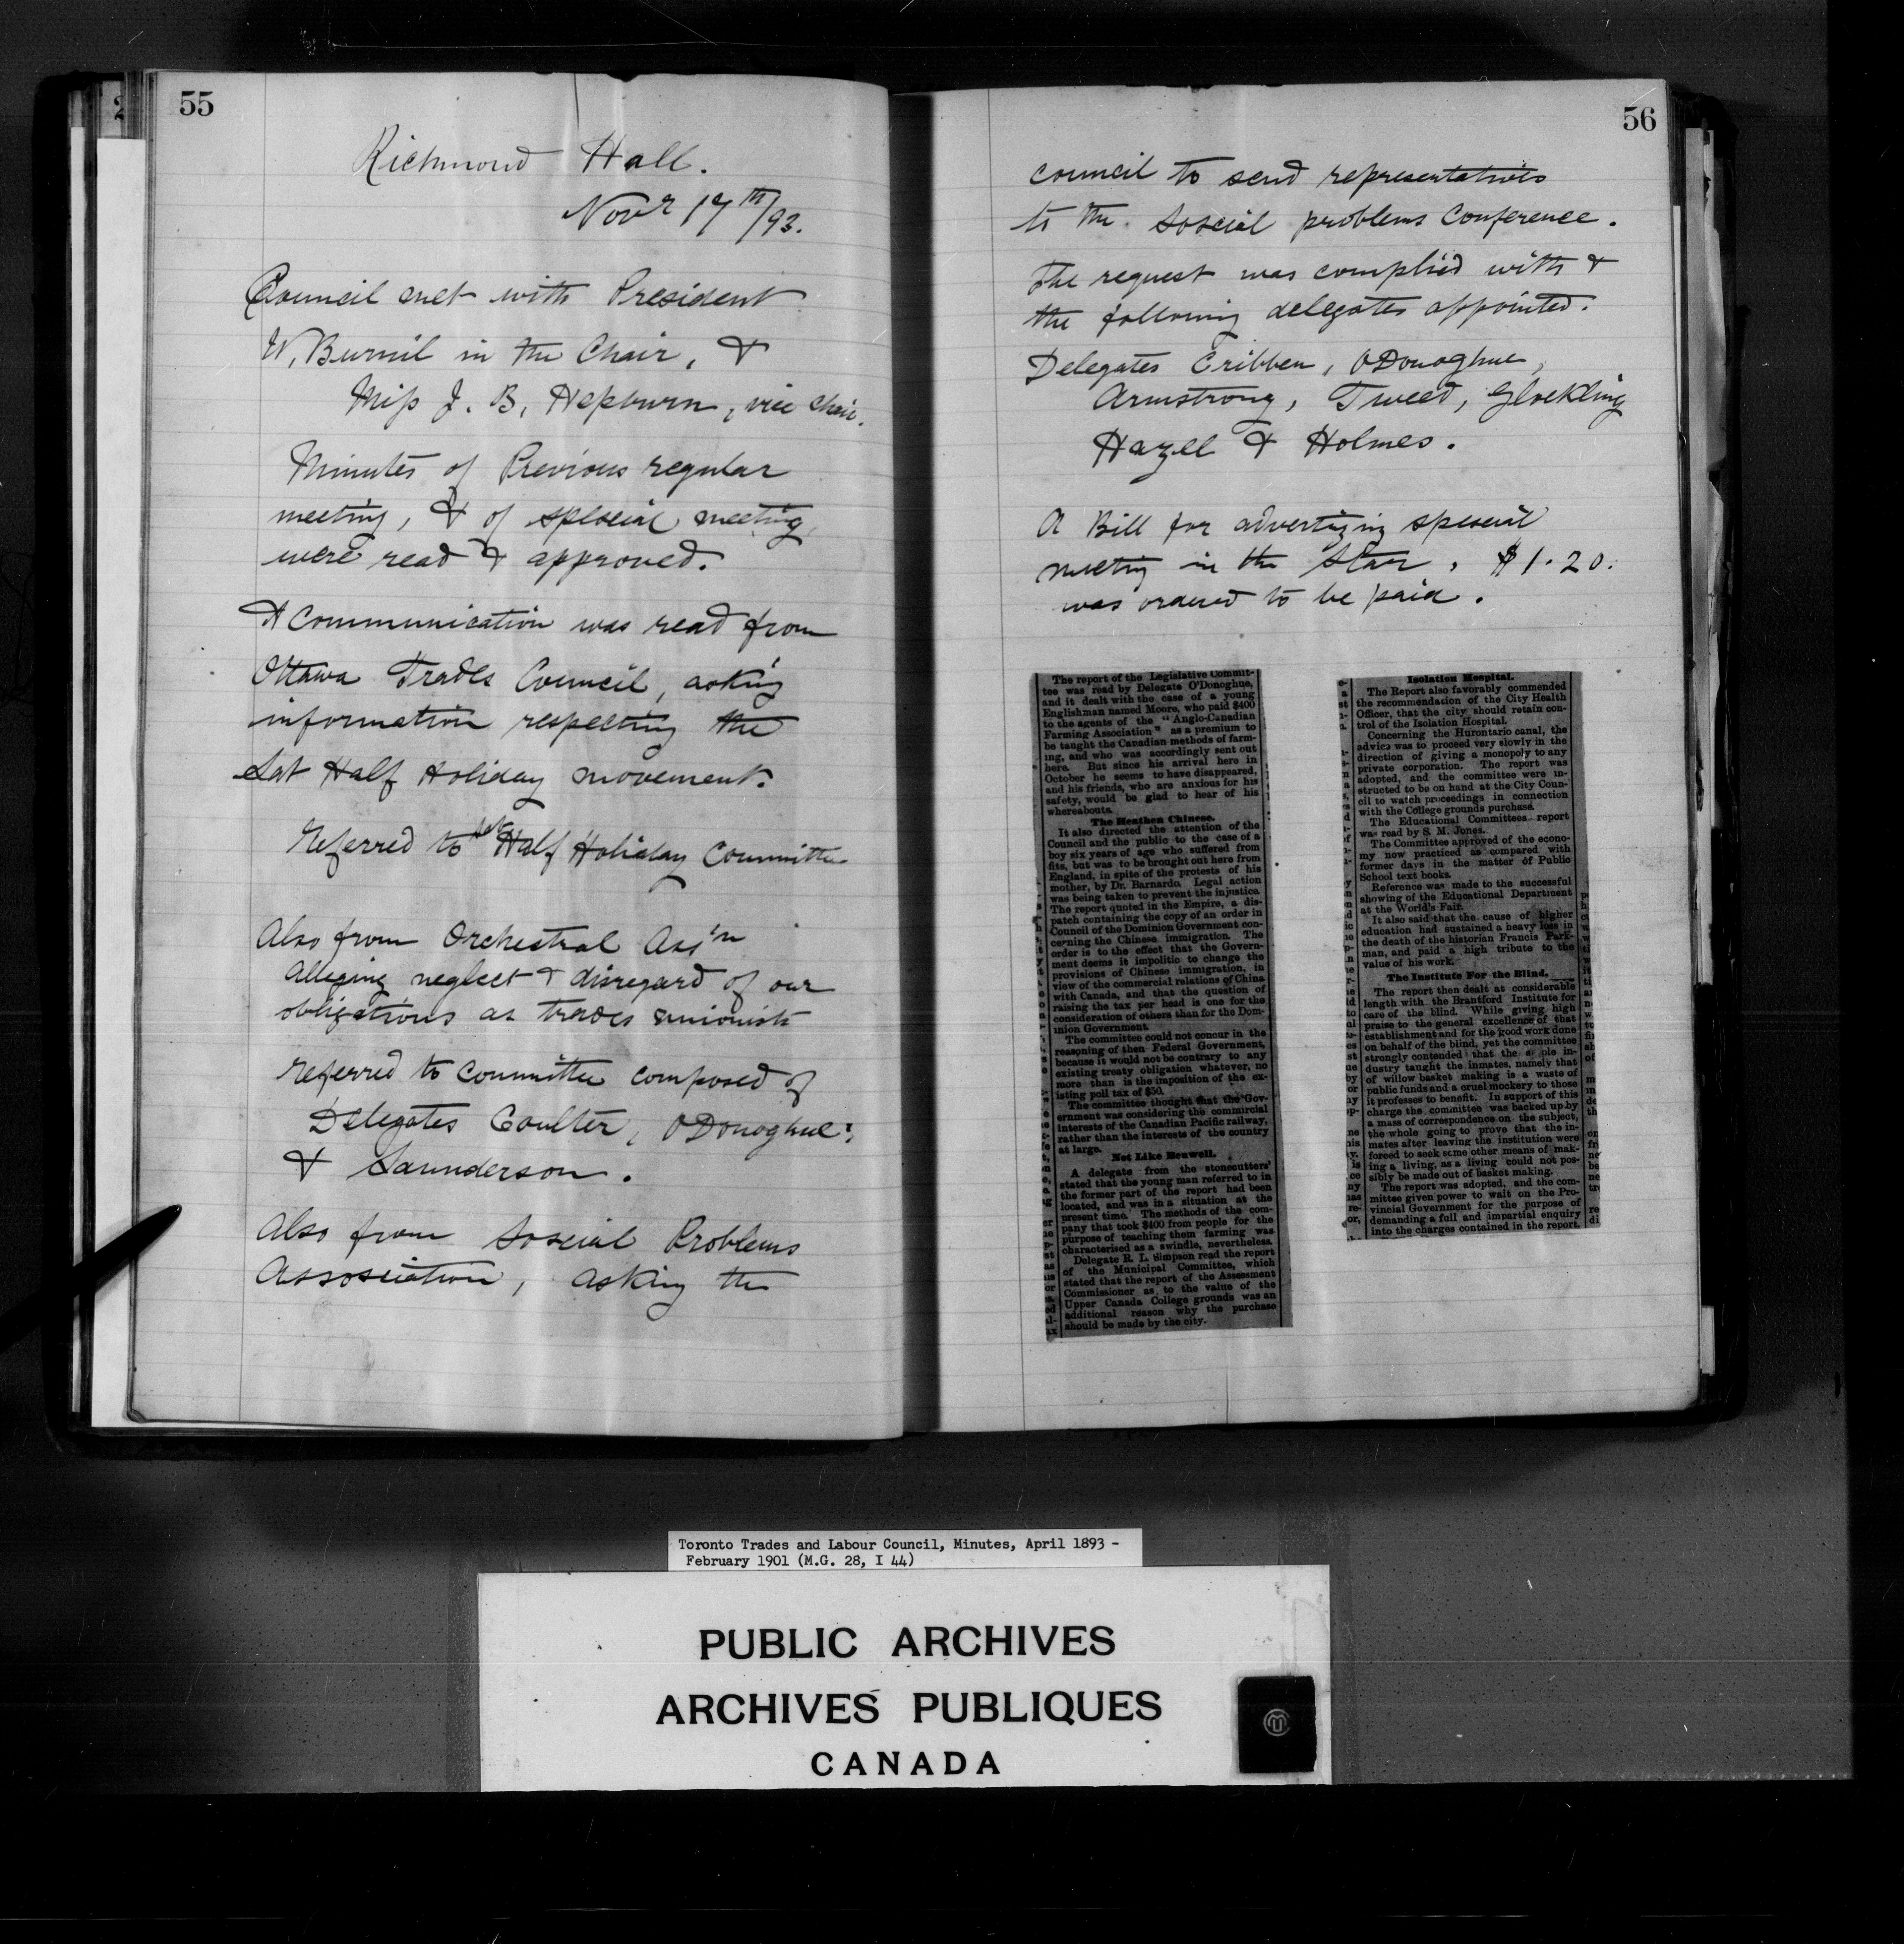 55
Richmond Hall.
Novr 17th/93.
Council met with President
W. Burnil in the Chair, &
Miss J. B. Hepburn, vice chair.
Minutes of Previous regular
meeting, & of special meeting,
were read & approved.
A Communication was read from
Ottawa Trades Council, asking
information respecting the
Sat Half Holiday movement.
Referred to Half Holiday Committee
Also from Orchestral Ass'n
Alleging neglect & disregard of our
obligations as trades unionists
referred to Committee composed of
Delegates Coulter, O'Donoghue,
& Saunderson.
Also from Soscial Problems
Assosciation, asking the
56
council to send representatives
to the Soscial problems Conference.
The request was complied with &
the following delegates appointed.
Delegates Cribben, O'Donoghue,
Armstrong, Tweed, Glockling
Hazell & Holmes.
A Bill for advertizing spescial
meeting in the Star, $1.20.
was ordered to be paid.
The report of the Legislative Commit-
tee was read by Delegate O'Donoghue,
and it dealt with the case of a young
Englishman named Moore, who paid $400
to the agents of the "Anglo-Canadian
Farming Association" as a premium to
be taught the Canadian methods of farm-
ing, and who was accordingly sent out
here. But since his arrival here in
October he seems to have disappeared,
and his friends, who are anxious for his
safety, would be glad to hear of his
whereabouts.
The Heathen Chinese.
It also directed the attention of the
Council and the public to the case of a
boy six years of age who suffered from
fits, but was to be brought out here from
England, in spite of the protests of his
mother, by Dr. Barnardo. Legal action
was being taken to prevent the injustice.
The report quoted in the Empire, a dis-
patch containing the copy of an order in
Council of the Dominion Government con-
cerning the Chinese immigration. The
order is to the effect that the Govern-
ment deems it impolitic to change the
provisions of Chinese immigration, in
view of the commercial relations of China
with Canada, and that the question of
raising the tax per head is one for the
consideration of others than for the Dom-
inion Government.
The committee could not concur in the
reasoning of then Federal Government,
because it would not be contrary to any
existing treaty obligation whatever, no
more than is the imposition of the ex-
isting poll tax of $50.
The committee thought that the Gov-
ernment was considering the commercial
interests of the Canadian Pacific railway,
rather than the interests of the country
at large.
Not Like Benwell.
A delegate from the stonecutters'
stated that the young man referred to in
the former part of the report had been
located, and was in a situation at the
present time. The methods of the com-
pany that took $400 from people for the
purpose of teaching them farming was
characterised as a swindle, nevertheless.
Delegate R. L. Simpson read the report
of the Municipal Committee, which
stated that the report of the Assessment
Commissioner as to the value of the
Upper Canada College grounds was an
additional reason why the purchase
should be made by the city.
Isolation Hospital.
The Report also favorably commended
the recommendation of the City Health
Officer, that the city should retain con-
trol of the Isolation Hospital.
Concerning the Hurontario canal, the
advice was to proceed very slowly in the
direction of giving a monopoly to any
private corporation. The report was
adopted, and the committee were in-
structed to be on hand at the City Coun-
cil to watch proceedings in connection
with the College grounds purchase.
The Educational Committees report
was read by S. M. Jones.
The Committee approved of the econo-
my now practiced as compared with
former days in the matter of Public
School text books.
Reference was made to the successful
showing of the Educational Department
at the World's Fair.
It also said that the cause of higher
education had sustained a heavy loss in
the death of the historian Francis Park-
man, and paid a high tribute to the
value of his work.
The Institute For the Blind.
The report then dealt at considerable
length with the Brantford Institute for
care of the blind. While giving high
praise to the general excellence of that
establishment and for the good work done
on behalf of the blind, yet the committee
strongly contended that the in-
dustry taught the inmates, namely that
of willow basket making is a waste of
public funds and a cruel mockery to those
it professes to benefit. In support of this
charge the committee was backed up by
a mass of correspondence on the subject,
the whole going to prove that the in-
mates after leaving the institution were
forced to seek some other means of mak-
ing a living, as a living could not pos-
sibly be made out of basket making.
The report was adopted, and the com-
mittee given power to wait on the Pro-
vincial Government for the purpose of
demanding a full and impartial enquiry
into the charges contained in the report.
Toronto Trades and Labour Council, Minutes, April 1893 -
February 1901 (M.G. 28, I 44)
PUBLIC ARCHIVES
ARCHIVES PUBLIQUES
CANADA